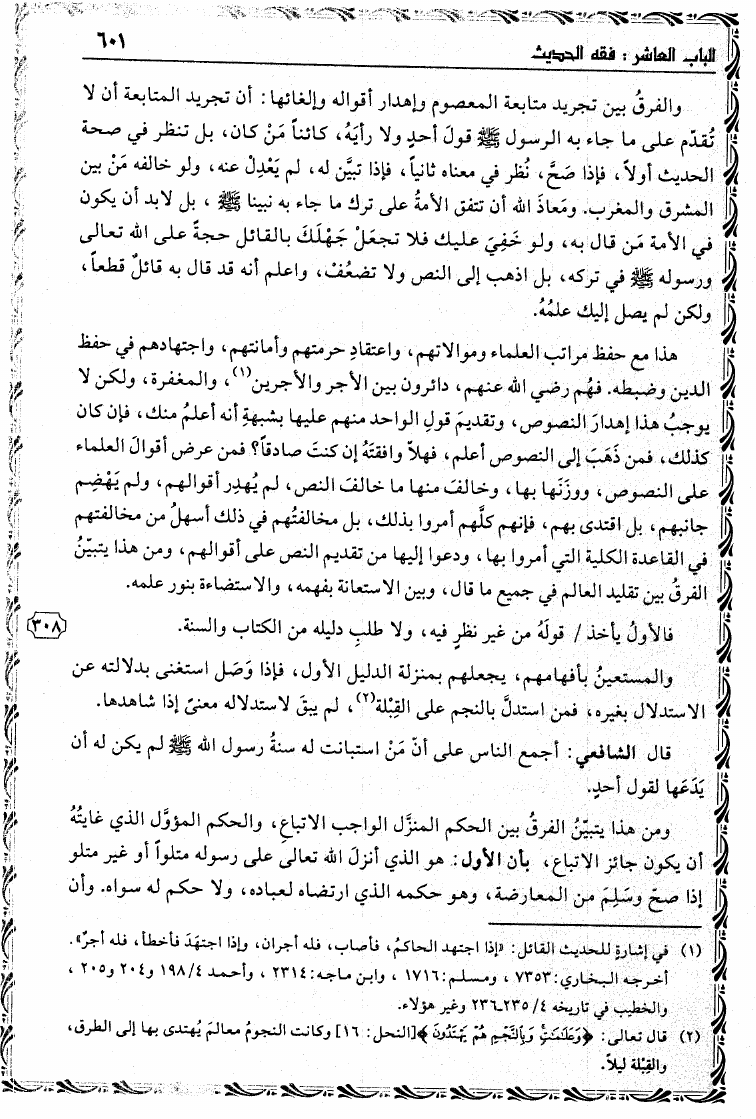 الباب العاشر : فقه الحديث
٦٠١
والفرقُ بين تجريد متابعة المعصوم وإهدار أقواله وإلغائها: أن تجريد المتابعة أن لا
تُقدّم على ما جاء به الرسول ﷺ قولَ أحدٍ ولا رأيَهُ، كائناً مَنْ كان، بل تنظر في صحة
الحديث أولاً، فإذا صَحَّ، نُظر في معناه ثانياً، فإذا تبيَّن له، لم يَعْدِلْ عنه، ولو خالفه مَنْ بين
المشرق والمغرب. ومَعاذَ الله أن تتفق الأمةُ على ترك ما جاء به نبينا ﷺ، بل لابد أن يكون
في الأمة مَن قال به، ولو خَفِيَ عليك فلا تجعَلْ جَهْلَكَ بالقائل حجةً على الله تعالى
ورسوله ﷺ في تركه، بل اذهب إلى النص ولا تضعُفْ، واعلم أنه قد قال به قائلٌ قطعاً،
ولكن لم يصل إليك علمُهُ.
هذا مع حفظ مراتب العلماء وموالاتهم، واعتقادِ حرمتهم وأمانتهم، واجتهادهم في حفظ
الدين وضبطه. فهُم رضي الله عنهم، دائرون بين الأجر والأجرين(١)، والمغفرة، ولكن لا
يوجبُ هذا إهدارَ النصوص، وتقديمَ قولِ الواحد منهم عليها بشبهةِ أنه أعلمُ منك، فإن كان
كذلك، فمن ذَهَبَ إلى النصوص أعلم، فهلاّ وافقتَهُ إن كنتَ صادقاً؟ فمن عرض أقوالَ العلماء
على النصوص، ووزَنَها بها، وخالفَ منها ما خالفَ النص، لم يُهدِر أقوالهم، ولم يَهْضِم
جانبهم، بل اقتدى بهم، فإنهم كلَّهم أمروا بذلك، بل مخالفتُهم في ذلك أسهلُ من مخالفتهم
في القاعدة الكلية التي أمروا بها، ودعوا إليها من تقديم النص على أقوالهم، ومن هذا يتبيّنُ
الفرقُ بين تقليد العالم في جميع ما قال، وبين الاستعانة بفهمه، والاستضاءة بنور علمه.
فالأولُ يأخذ / قولَهُ من غير نظرٍ فيه، ولا طلبِ دليله من الكتاب والسنة.
٣٠٨
والمستعينُ بأفهامهم، يجعلهم بمنزلة الدليل الأول، فإذا وَصَل استغنى بدلالته عن
الاستدلال بغيره، فمن استدلَّ بالنجم على القِبْلة(٢)، لم يبقَ لاستدلاله معنىً إذا شاهدها.
قال الشافعي: أجمع الناس على أنّ مَنْ استبانت له سنةُ رسول الله ﷺ لم يكن له أن
يَدَعَها لقول أحدٍ.
ومن هذا يتبيّنُ الفرقُ بين الحكم المنزَّل الواجب الاتباعِ، والحكم المؤوَّل الذي غايتُهُ
أن يكون جائز الاتباع، بأن الأول: هو الذي أنزلَ الله تعالى على رسوله متلواً أو غير متلو
إذا صحّ وسَلِمَ من المعارضة، وهو حكمه الذي ارتضاه لعباده، ولا حكم له سواه. وأن
(١) في إشارةٍ للحديث القائل: «إذا اجتهد الحاكمُ، فأصاب، فله أجران، وإذا اجتهَدَ فأخطأ، فله أجرٌ».
أخرجه البخاري: ٧٣٥٣، ومسلم: ١٧١٦، وابن ماجه: ٢٣١٤، وأحمد ٤/ ١٩٨ و٢٠٤ و٢٠٥،
والخطيب في تاريخه ٤/ ٢٣٥ـ٢٣٦ وغير هؤلاء.
(٢) قال تعالى: ﴿وَعَلَامَاتٍ وَبِالنَّجْمِ هُمْ يَهْتَدُونَ﴾ [النحل: ١٦] وكانت النجومُ معالمَ يُهتدى بها إلى الطرق،
والقِبْلة ليلاً.